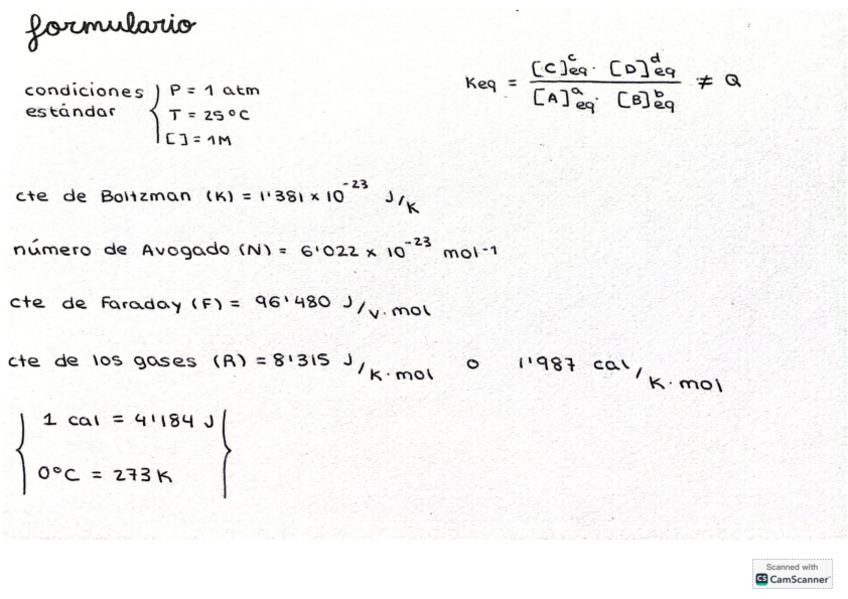 formulario
condiciones P = 1 atm
estándar T = 25°C
[ ] = 1M
Keq = [C]^c eq · [D]^d eq / [A]^a eq · [B]^b eq ≠ Q
cte de Boltzman (K) = 1'381 × 10^-23 J/K
número de Avogado (N) = 6'022 × 10^-23 mol-1
cte de Faraday (F) = 96'480 J/V·mol
cte de los gases (R) = 8'315 J/K·mol o 1'987 cal/K·mol
1 cal = 4'184 J
0°C = 273 K
Scanned with
CS CamScanner